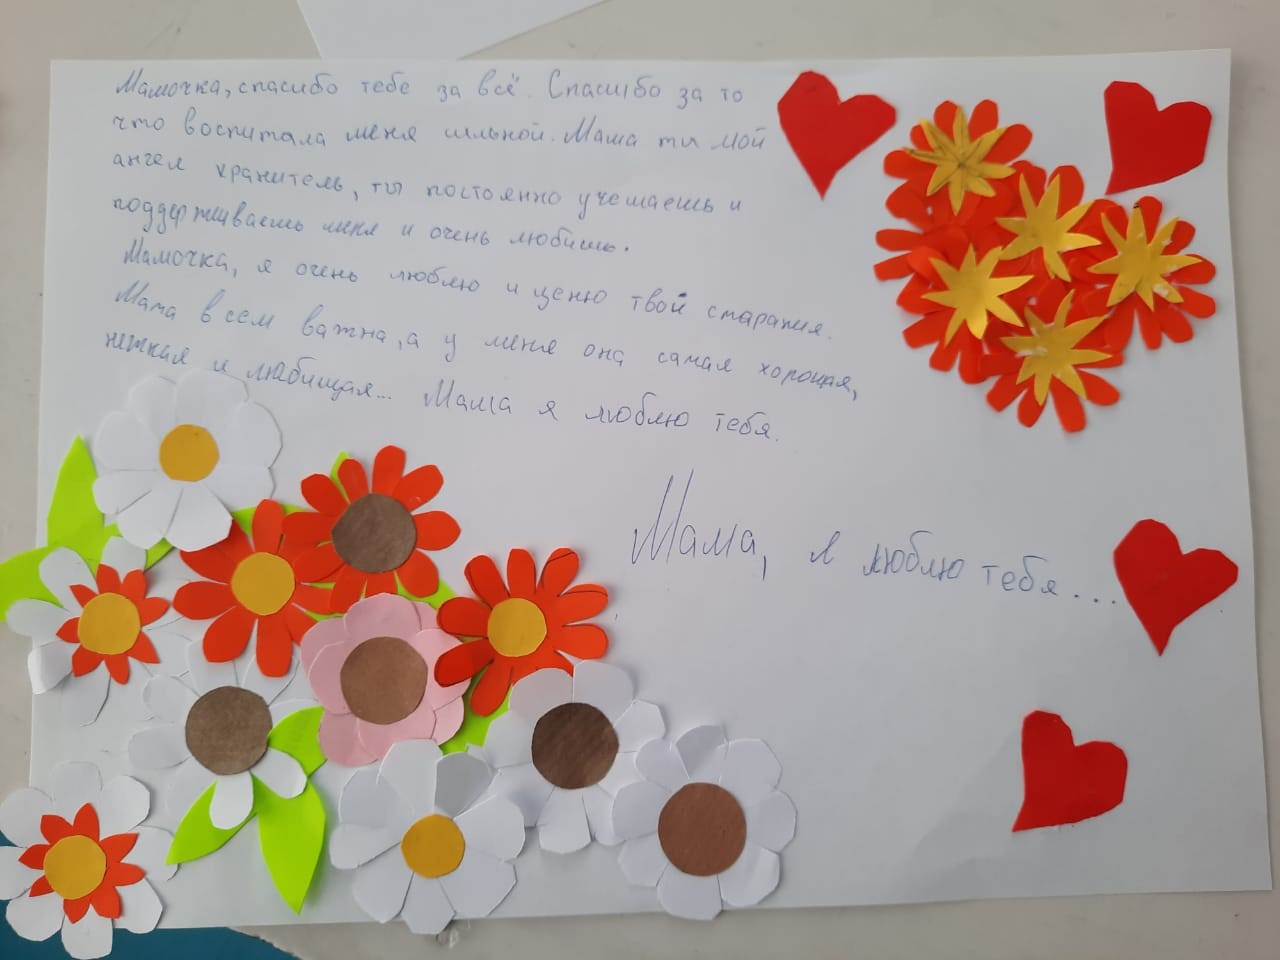 Мамочка, спасибо тебе за всё. Спасибо за то
что воспитала меня сильной. Мама ты мой
ангел хранитель, ты постоянно учешаешь и
поддерживаешь меня и очень любишь.
Мамочка, я очень люблю и ценю твои старания.
Мама всем важна, а у меня она самая хорошая,
нежная и любищая... Мама я люблю тебя.
Мама, я люблю тебя...